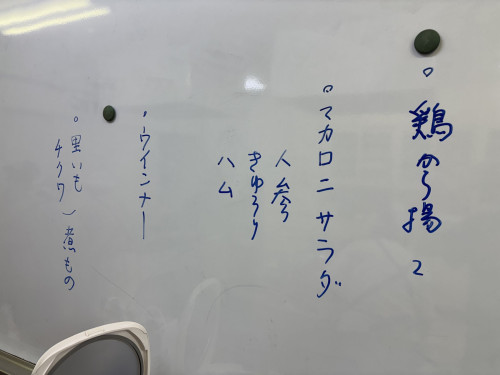 。鶏から揚 2
。マカロニサラダ
人参
きゅうり
ハム
・ウインナー
。里いも
チクワ ) 煮もの